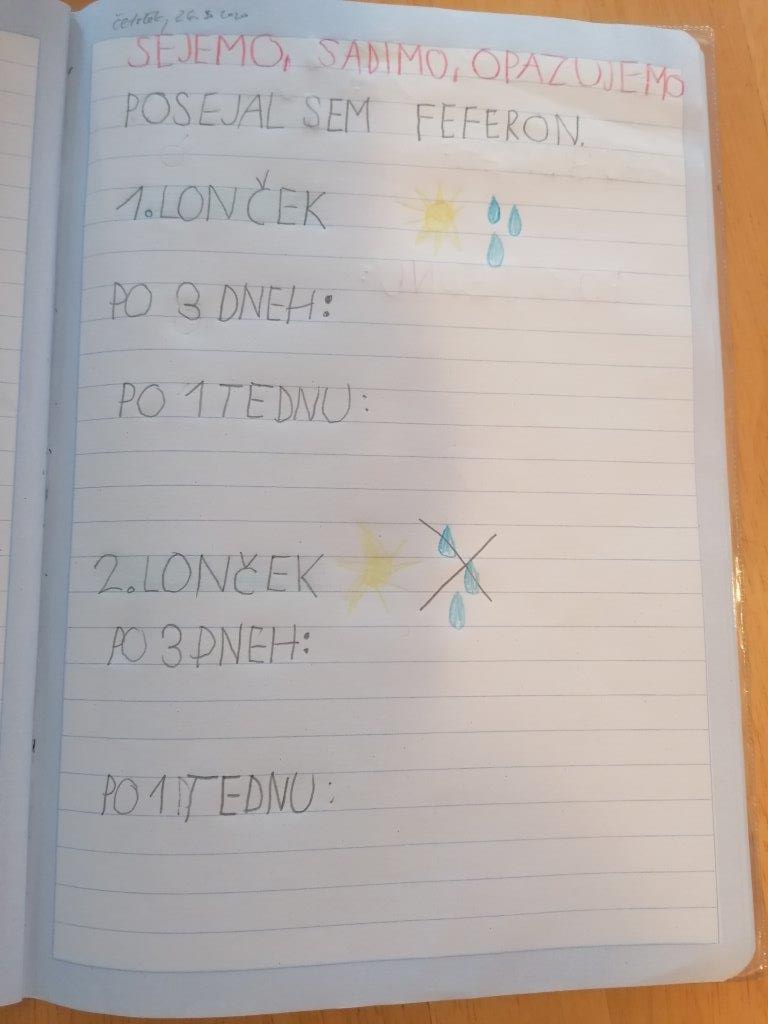 četrtek, 26. 3. 2020
SEJEMO, SADIMO, OPAZUJEMO
POSEJAL SEM FEFERON.
1. LONČEK
PO 3 DNEH:
PO 1 TEDNU:
2. LONČEK
PO 3 DNEH:
PO 1 TEDNU: